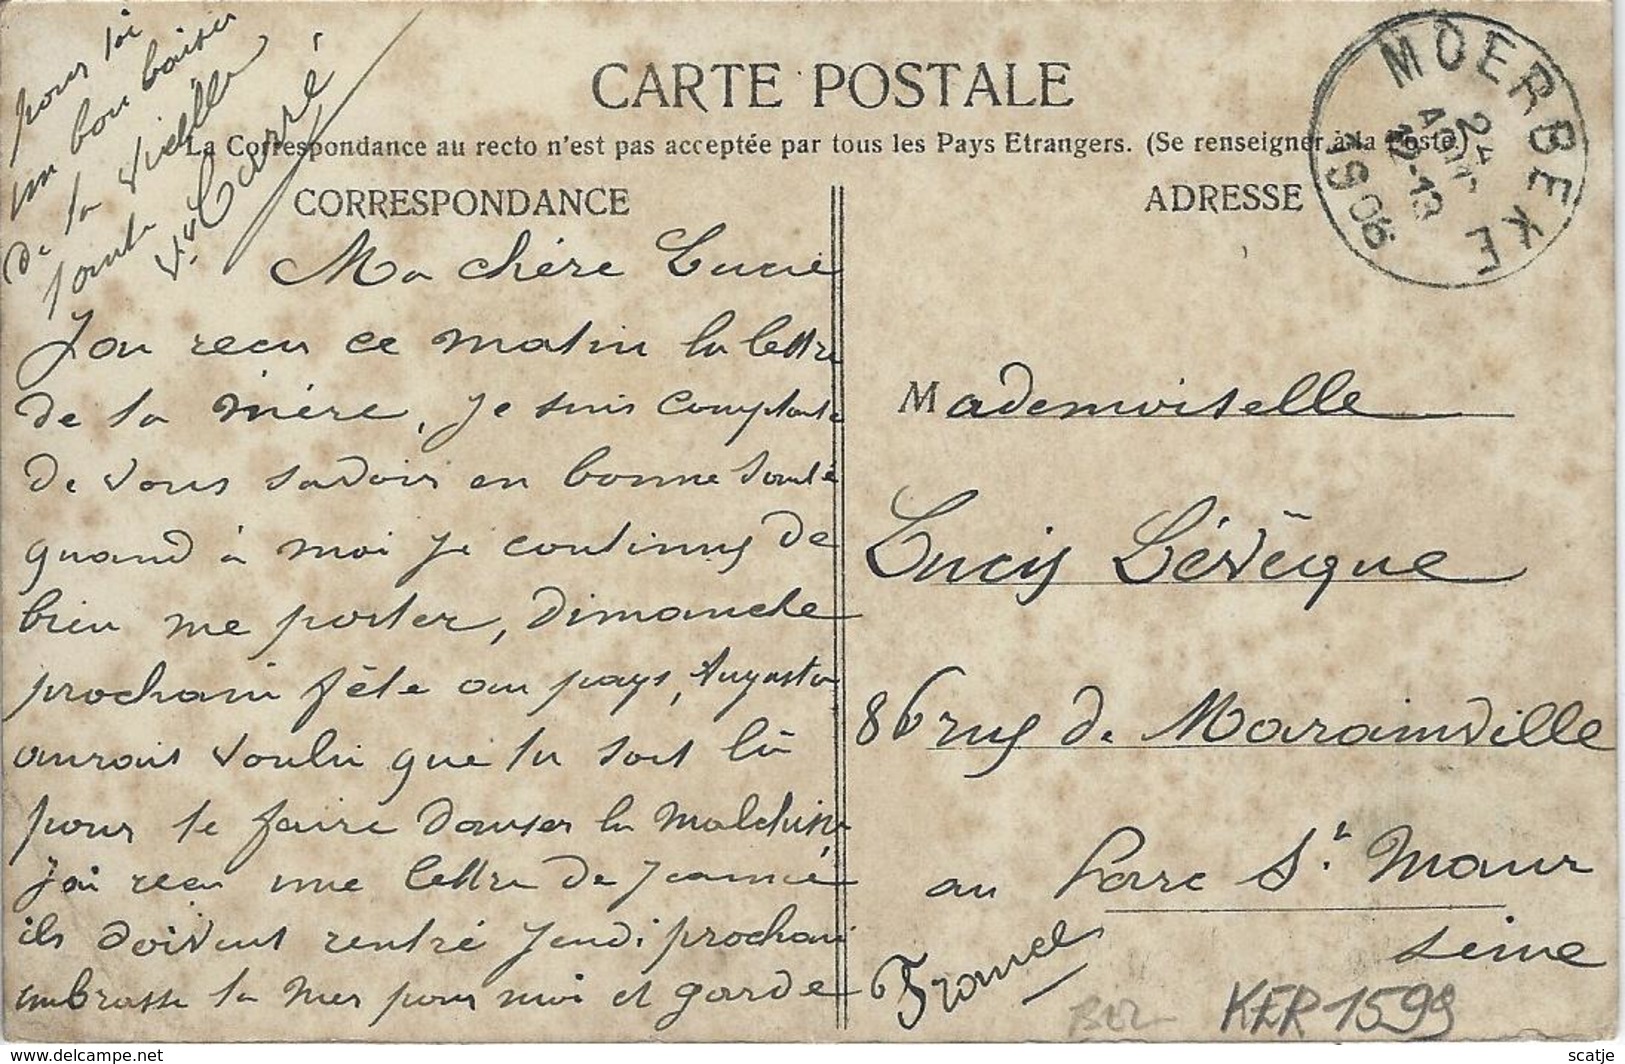 CARTE POSTALE
La Correspondance au recto n'est pas acceptée par tous les Pays Etrangers. (Se renseigner à la Poste)
CORRESPONDANCE
Ma chère Lucie
J'ai recu ce matin la lettre
de ta mère, je suis
de vous savoir en bonne santé
quand à moi je continus de
bien me porter, dimanche
prochain fête au pays, Augusta
aurait voulu que tu soit là
pour te faire danser la
j'ai recu une lettre de Jeanne
ils doivent rentré Jeudi prochain
embrasse ta mer pour moi et garde
pour toi
un bon baiser
de ta vieille
tante
Vve Carré
ADRESSE
Mademoiselle
Lucie Lévêque
86 rue de Marainville
au Parc St. Maur
Seine
France
MOERBEKE
24
AOUT
12-13
1906
KER 1599
scatje